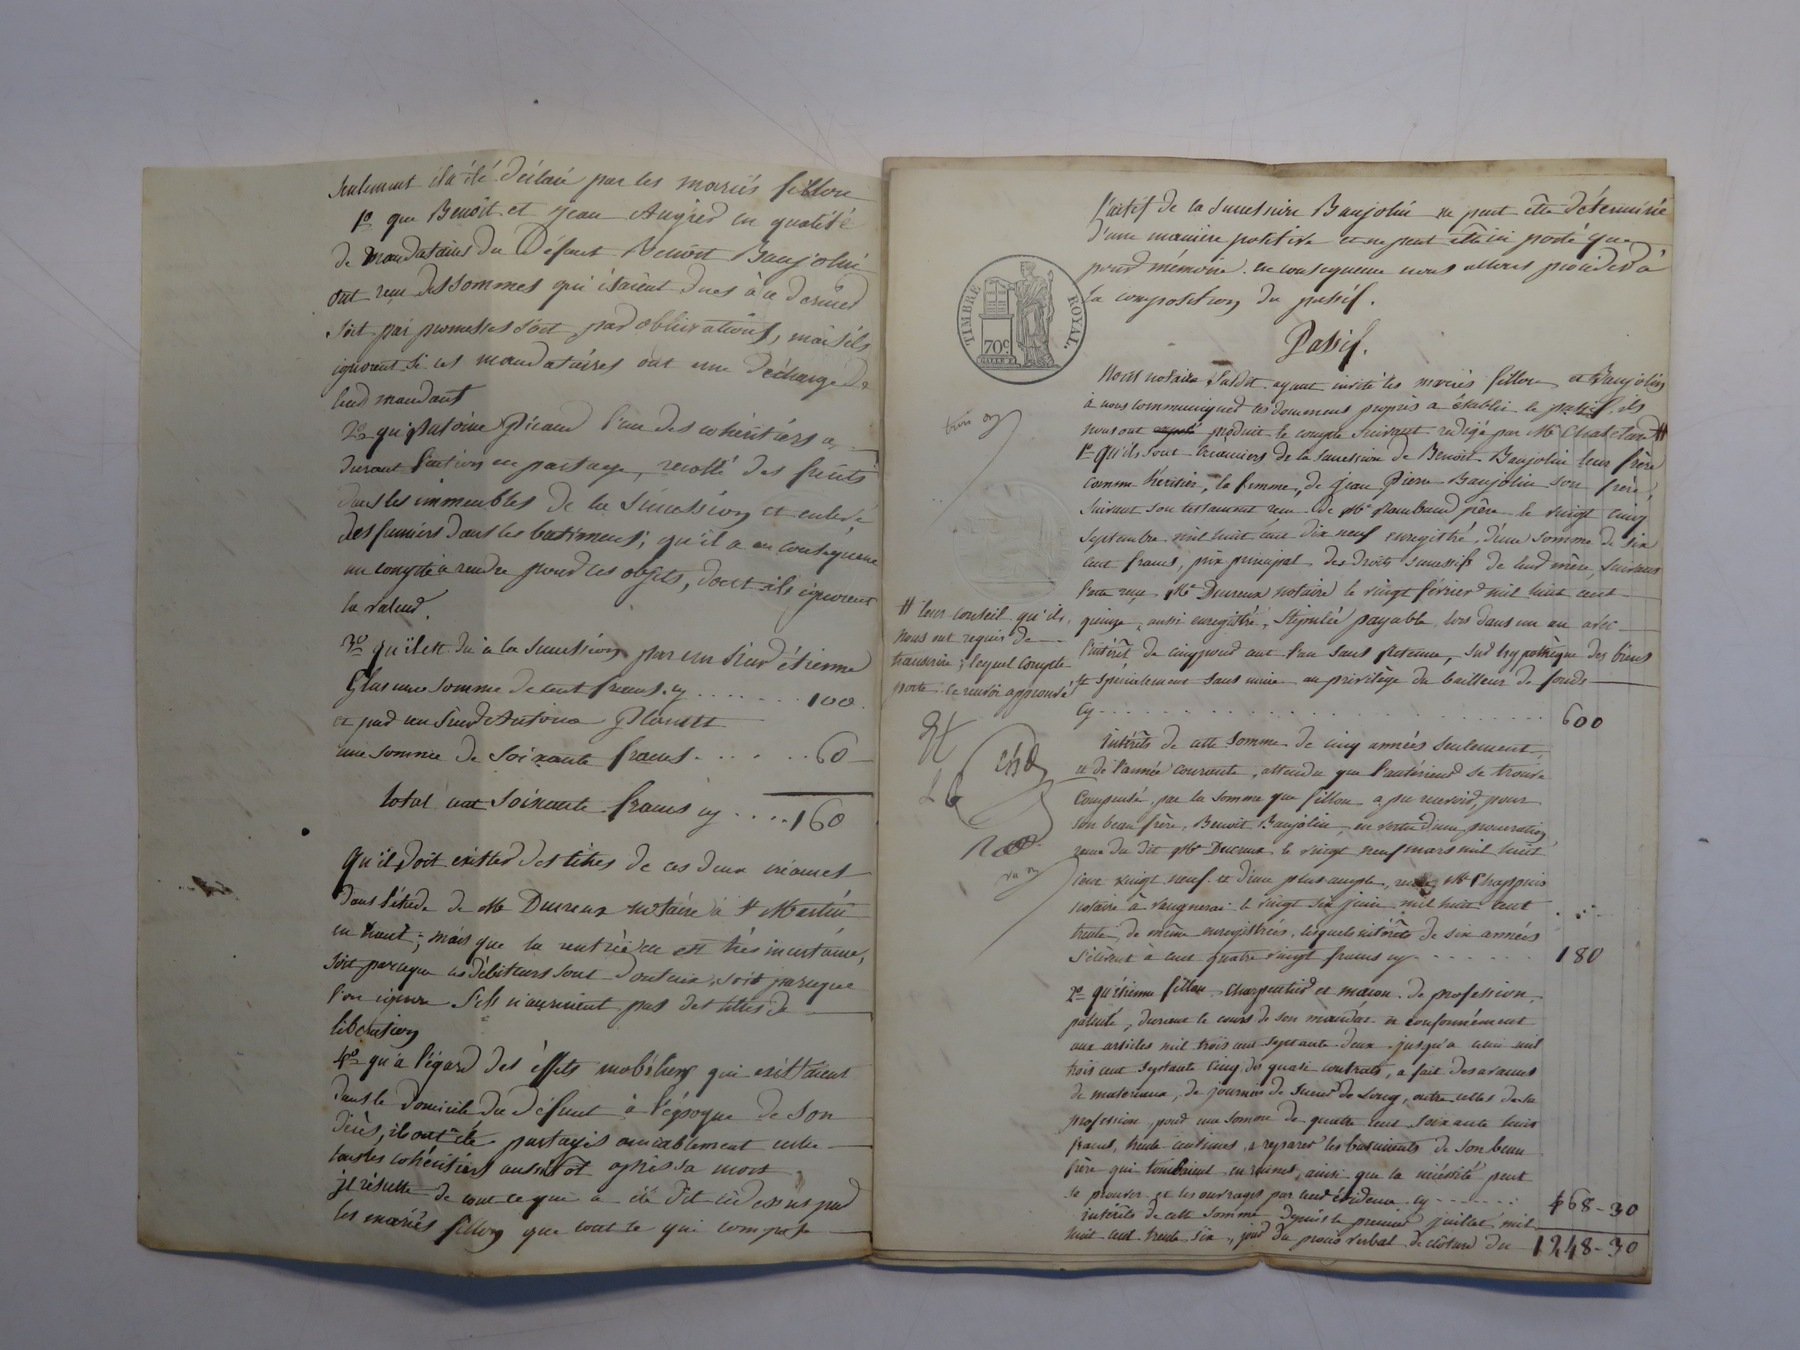 seulement il a été déclaré par les mariés fillon
1º que Benoit et jean Augier en qualité
de mandataires du défunt Benoit Baujolin
ont reçu des sommes qui étaient dues à ce dernier
soit par promesses soit par obligations, mais ils
ignorent si ces mandataires ont une décharge de
leur mandant
2º qu'Antoine Picaud l'un des cohéritiers a
durant l'action en partage, récolté des fruits
dans les immeubles de la succession et enlevé
des fumiers dans les batimens; qu'il a en conséquence
un compte à rendre pour ces objets, dont ils ignorent
la valeur.
3º qu'il est dû à la succession par un sieur étienne
une somme de cent francs cy ....... 100
et par un sieur Antoine
une somme de soixante francs ...... 60
total cent soixante francs cy .... 160
Qu'il doit exister des titres de ces deux créances
dans l'étude de Me Ducreux notaire à St Martin
en haut; mais que la rentrée en est très incertaine,
soit parceque les débiteurs sont douteux, soit parceque
l'on ignore s'ils n'auraient pas des titres de
libération
4º qu'à l'égard des éffets mobiliers qui existaient
dans le domicile du défunt à l'époque de son
décès, ils ont été partagés amicablement entre
tous les cohéritiers aussitôt après sa mort
il résulte de tout ce qui a été dit ci dessus par
les mariés fillon que tout ce qui compose
l'actif de la succession Baujolin ne peut être déterminé
d'une manière positive et ne peut être ici porté que
pour mémoire. en conséquence nous allons procéder à
la composition du passif.
TIMBRE ROYAL
70c
Passif.
Nous notaire susdit ayant invité les mariés fillon et Baujolin
à nous communiquer les documens propres à établir le passif. ils
nous ont produit le compte suivant rédigé par Me Chatelard #
1º Qu'ils sont créanciers de la succession de Benoit Baujolin leur frère
comme héritier, la femme, de jean Pierre Baujolin son frère,
suivant son testament reçu de Me Rambaud père le vingt cinq
septembre mil huit cent dix neuf enregistré, d'une somme de six
cent francs, prix principal des droits successifs de leur mère, suivant
l'acte reçu Me Ducreux notaire le vingt février mil huit cent
quinze, aussi enregistré, stipulée payable lors dans un an avec
l'intérêt de cinq pour cent l'an sans retenue, sur hypothèque des biens
et spécialement sans nuire au privilège du bailleur de fonds
cy ........ 600
# leur conseil qu'ils
nous ont requis de
transcrire; lequel compte
porte. ce renvoi approuvé
intérêts de cette somme de cinq années seulement
et de l'année courante, attendu que l'antérieur se trouve
compensé par la somme que fillon a pu recevoir, pour
son beau frère, Benoit Baujolin, en vertu d'une procuration
reçue du dit Me Ducreux le vingt neuf mars mil huit
cent vingt neuf. et d'une plus ample, reçue Me Chappuis
notaire à vaugneray le vingt six juin mil huit cent
trente de même enregistrées, lesquels intérêts de six années
s'élèvent à cent quatre vingt francs cy ...... 180
2º qu'étienne fillon, charpentier et maçon de profession,
patenté, durant le cours de son mandat et conformément
aux articles mil trois cent septante deux jusqu'à celui mil
trois cent septante cinq des quasi contrats, a fait des avances
de materiaux, de journées de outre celles de sa
profession, pour une somme de quatre cent soixante huit
francs, trente centimes, à réparer les batiments de son beau
frère qui tombaient en ruines, ainsi que la nécessité peut
se prouver et les ouvrages par leur évidence cy ....... 468-30
intérêts de cette somme depuis le premier juillet mil
huit cent trente six, jour du procès verbal de clôture du 1248-30